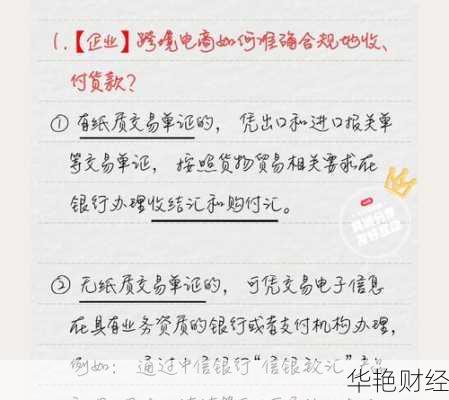 1.【企业】跨境电商如何准确合规地收、
付货款?
① 有纸质交易单证的，凭出口和进口报关单
等交易单证，按照货物贸易相关要求在
银行办理收结汇和购付汇。
② 无纸质交易单证的，可凭交易电子信息
在具有业务资质的银行或者支付机构办理，
例如：通过中信银行“信银致汇”
华艳财经